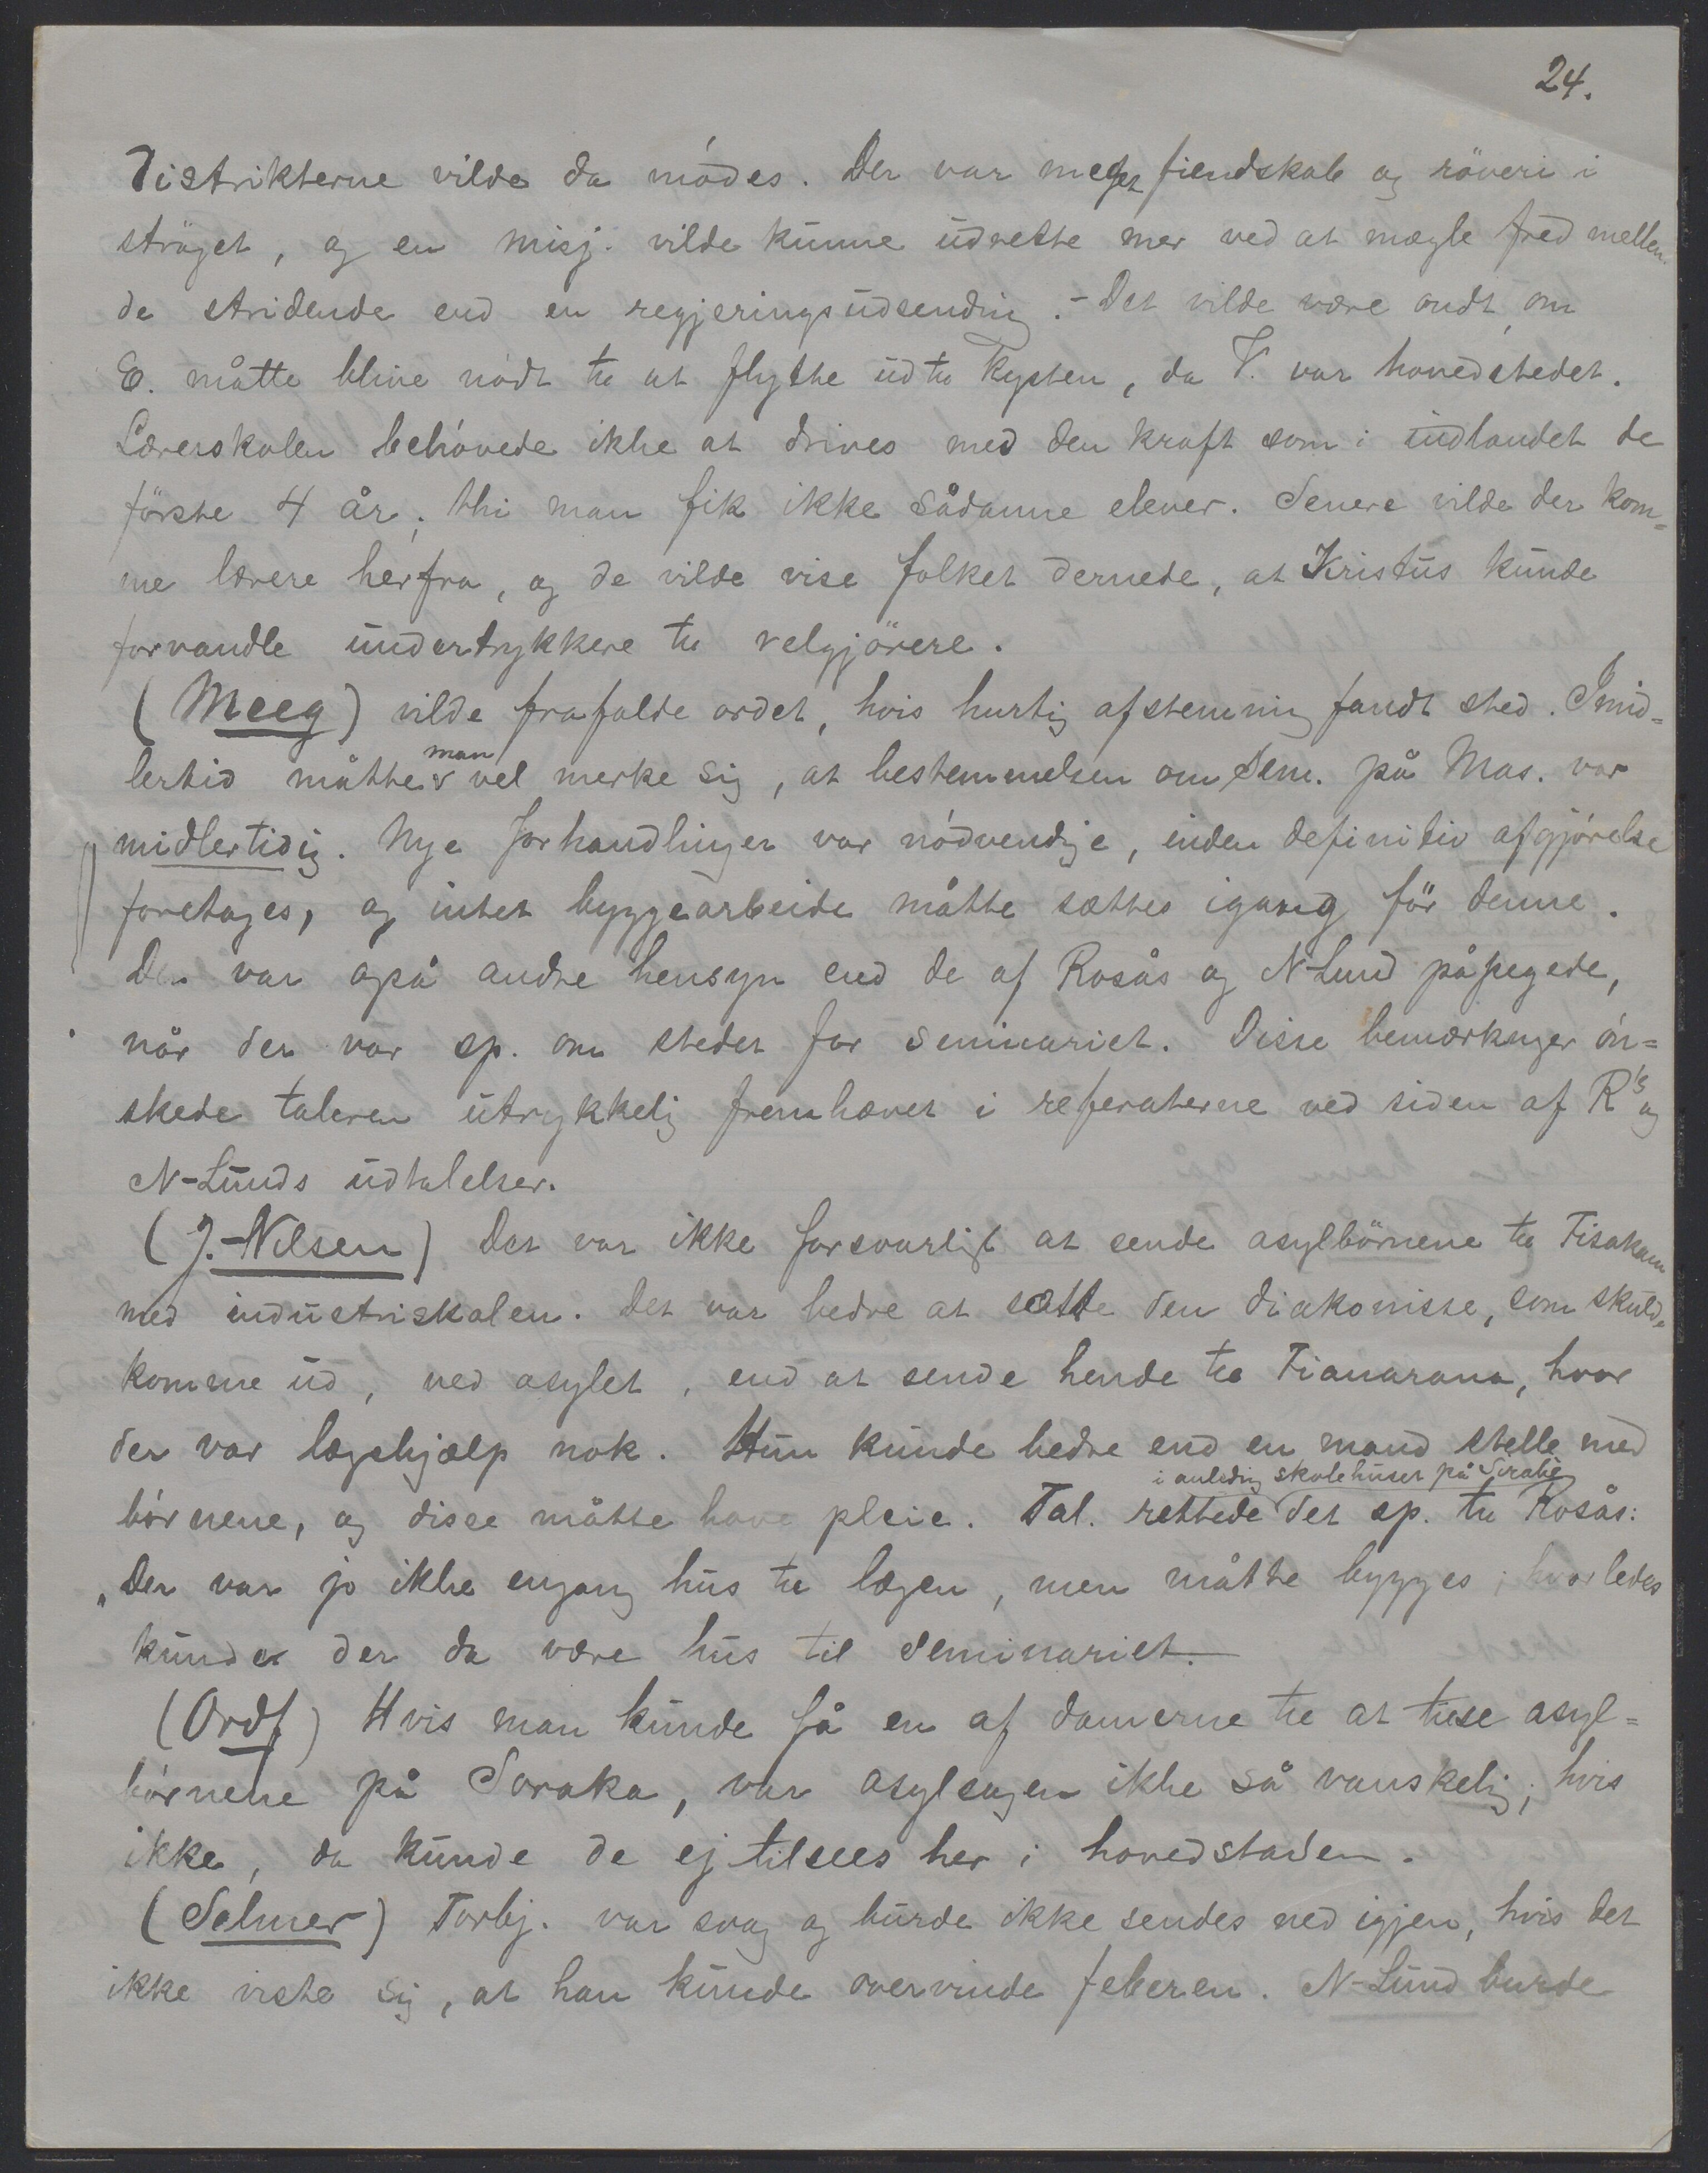 24.
Distrikterne vilde da mödes. Der var meget fiendskab og röveri i
ströget, og en misj. vilde kunne udrette mer ved at mægle fred mellem
de stridende end en regjeringsudsending. - Det vilde være ondt, om
E. måtte blive nödt til at flytte ud til kysten, da V. var hovedstedet.
Lærerskolen behövede ikke at drives med den kraft som i indlandet de
förste 4 år, thi man fik ikke sådanne elever. Senere vilde der kom=
me lærere herfra, og de vilde vise folket dernede, at Kristus kunde
forvandle undertrykkere til velgjörere.
(Meeg) vilde frafalde ordet, hvis hurtig afstemning fandt sted. Imid=
lertid måtte man vel merke sig, at bestemmelsen om Sem. på Mas. var
midlertidig. Nye forhandlinger var nödvendige, inden definitiv afgjörelse
foretages, og intet byggearbeide måtte sættes igang för denne.
Der var også andre hensyn end de af Rosås og N-Lund påpegede,
når der var sp. om stedet for seminariet. Disse bemærkninger ön=
skede taleren utrykkelig fremhævet i referaterne ved siden af R's og
N-Lunds udtalelser.
(J.-Nilsen) Det var ikke forsvarligt at sende asylbörnene til Fisakana
med industriskolen. Det var bedre at sætte den diakonisse, som skulde
komme ud, ved asylet, end at sende hende til Fianarana, hvor
der var lægehjælp nok. Hun kunde bedre end en mand stelle med
börnene, og disse måtte have pleie. Tal. rettede i anledning skolehuset på Sirabe det sp. til Rosås:
"Der var jo ikke engang hus til lægen, men måtte bygges; hvorledes
kunde der da være hus til seminariet.
(Ordf) Hvis man kunde få en af damerne til at tilse asyl=
börnene på Soraka, var asylsagen ikke så vanskelig; hvis
ikke, da kunde de ej tilsees her i hovedstaden.
(Selmer) Torbj. var svag og burde ikke sendes ned igjen, hvis det
ikke viste sig, at han kunde overvinde feberen. N-Lund burde